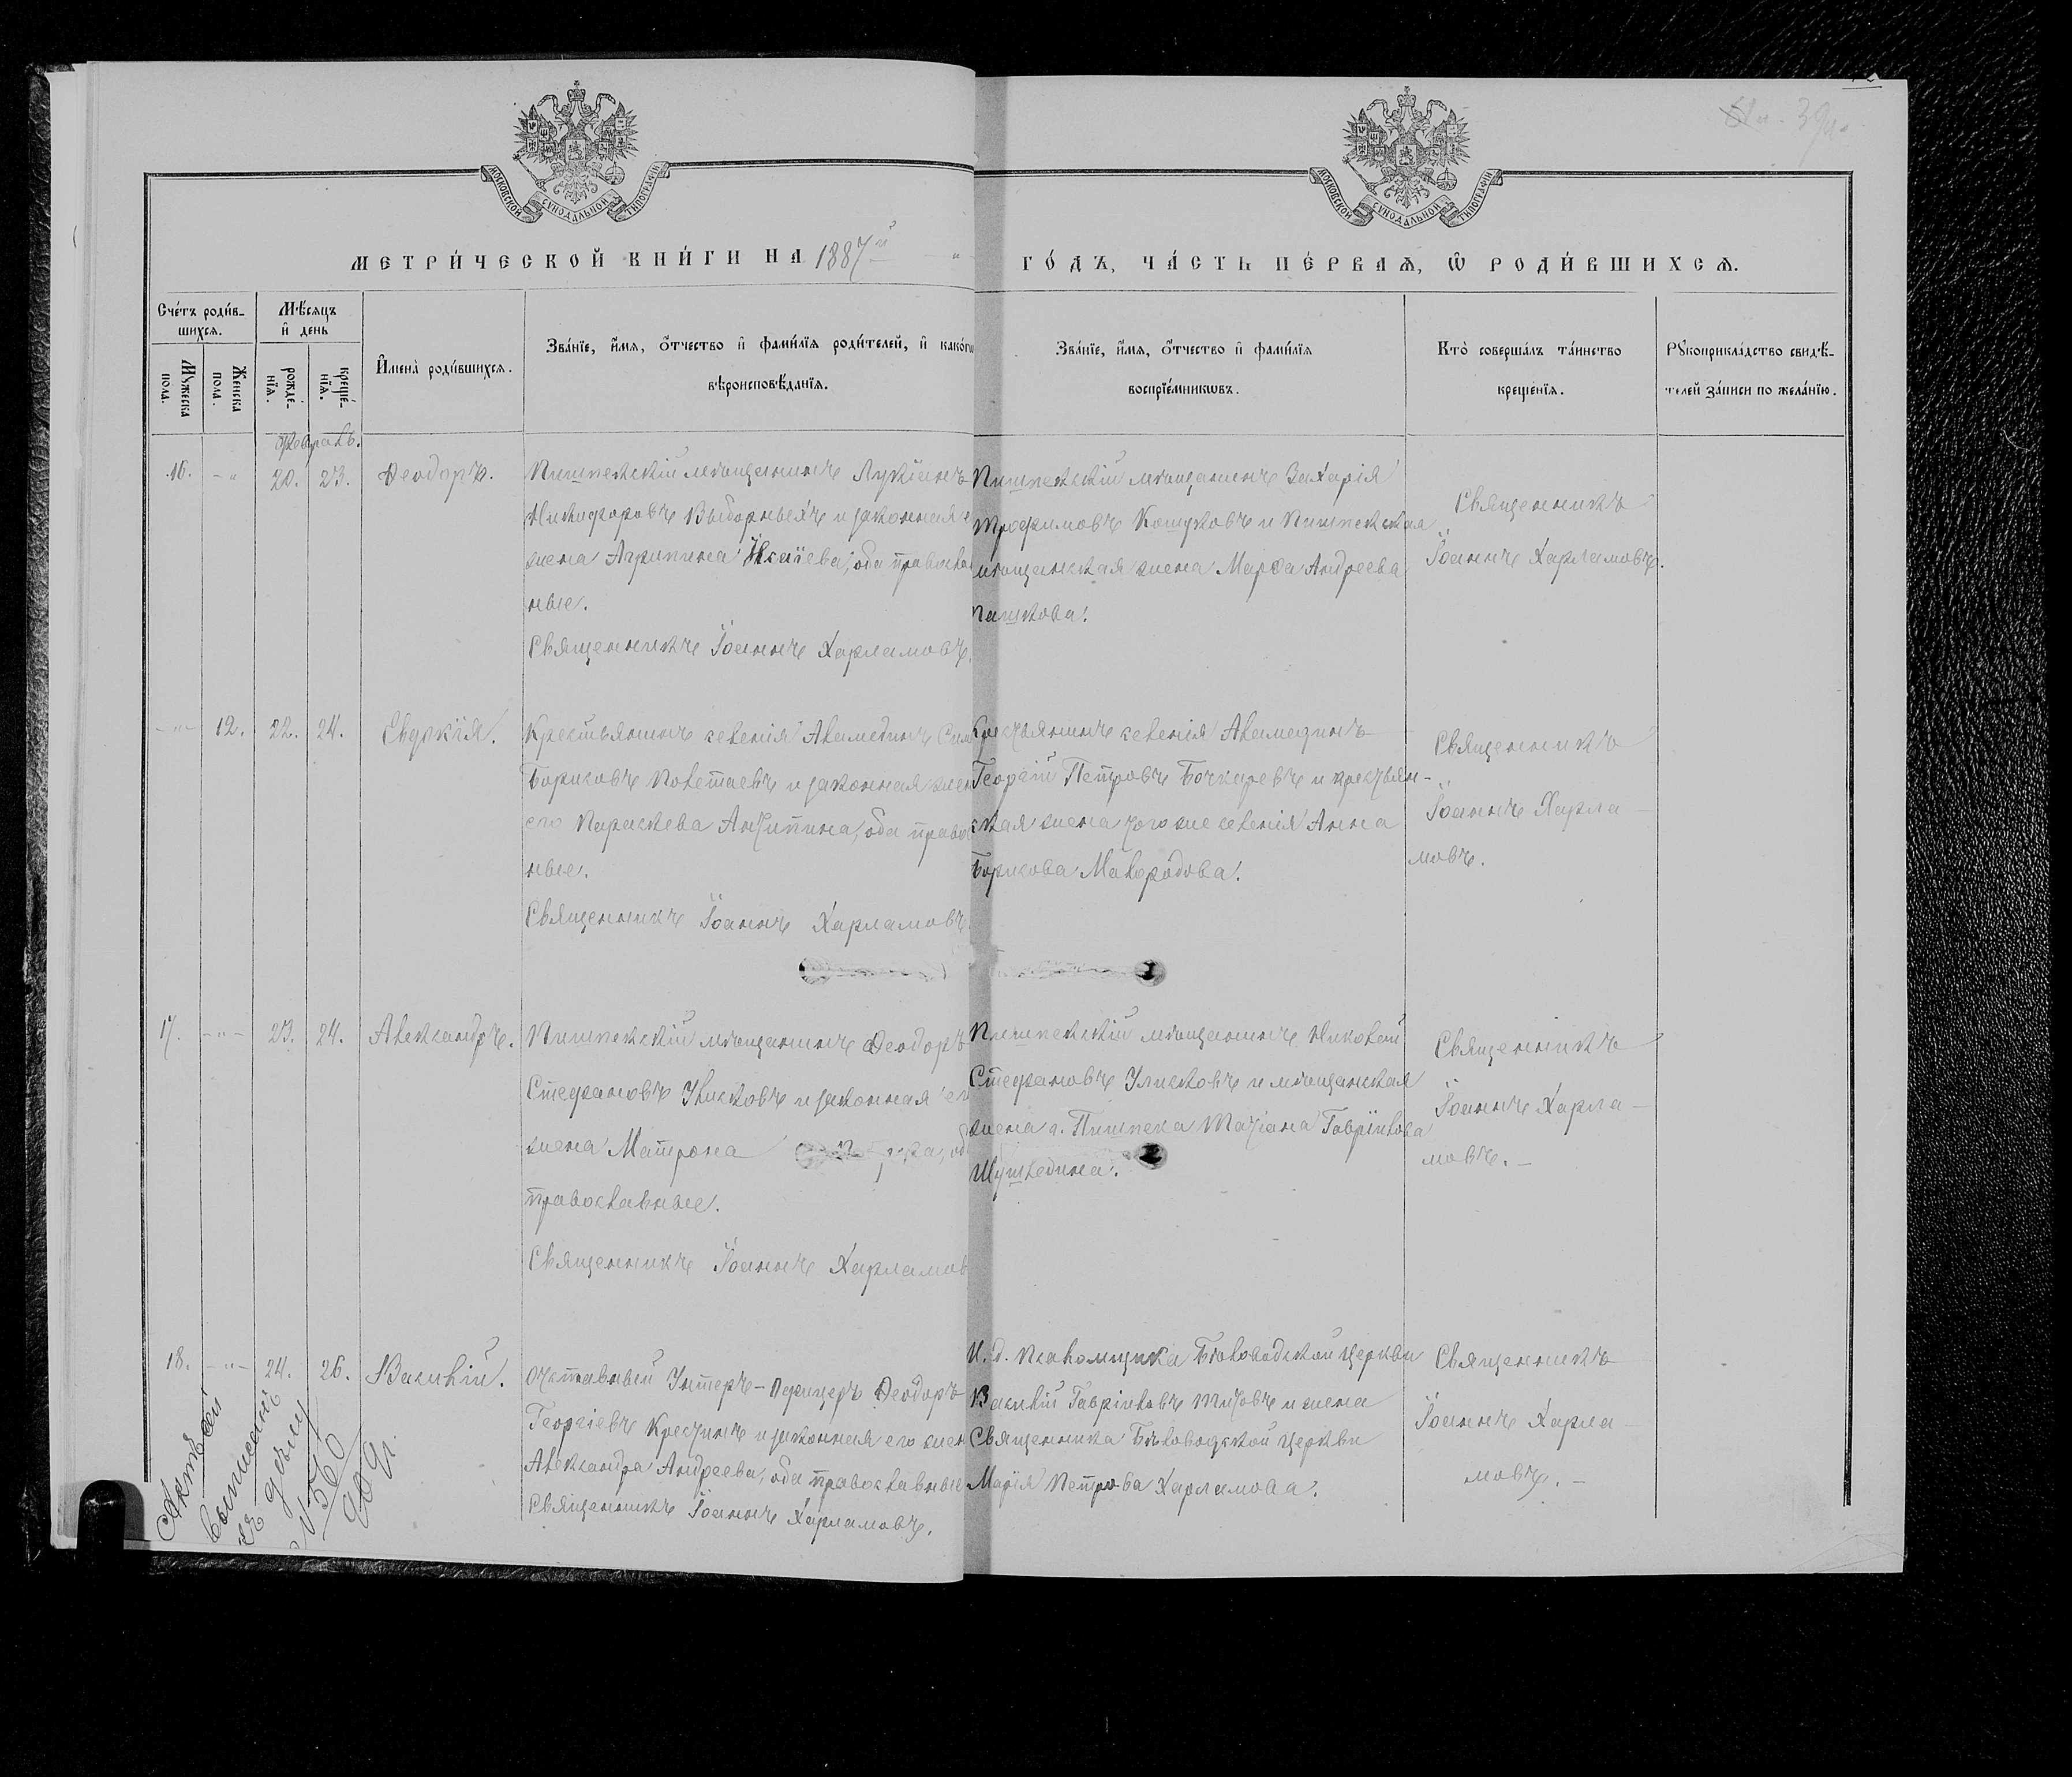 МОСКОВСКОЙ СУНОДАЛЬНОЙ ТИПОГРАФІИ
МОСКОВСКОЙ СУНОДАЛЬНОЙ ТИПОГРАФІИ
МЕТРИ́ЧЕСКОЙ КНИ́ГИ НА 1887й
ГО́ДЪ, ЧА́СТЬ ПЕ́РВАѦ, Ѡ РОДИ́ВШИХСѦ.
Сче́тъ роди́в-
шихсѧ.
Мꙋжеска пола.
Женска пола.
Мѣ́сѧцъ
и҆ день
рожде́-
нїѧ.
креще́-
нїѧ.
И҆мена̀ роди́вшихсѧ.
Зва́нїе, и҆́мѧ, ѻ҆́тчество и҆ фами́лїѧ роди́телей, и҆ како́гѡ
вѣроисповѣ́данїѧ.
Зва́нїе, и҆́мѧ, ѻ҆́тчество и҆ фами́лїѧ
воспрїе́мникѡвъ.
Кто̀ соверша́лъ та́инство
креще́нїѧ.
Рꙋкоприкла́дство свидѣ́-
телей за́писи по жела́нїю.
Февраль.
16. - " 20. 23. Ѳеодоръ.
Пишпекскій мѣщанинъ Лукіанъ
Никифоровъ Выборныхъ и законная е
жена Агрипина Исаіева, оба православ
ные.
Священникъ Іоаннъ Харламовъ.
Пишпекскій мѣщанинъ Захарія
Трофимовъ Кошуковъ и Пишпекская
мѣщанская жена Марѳа Андреева
Пашкова.
Священникъ
Іоаннъ Харламовъ.
- " - 12. 22. 24. Евдокія.
Крестьянинъ селенія Аламединъ
Борисовъ Полетаевъ и законная жен
его Параскева Антипина, оба право
ные.
Священникъ Іоаннъ Харламовъ
Крестьянинъ селенія Аламединъ
Георгій Петровъ Бочкаревъ и крестьян-
ская жена того же селенія Анна
Борисова Мавородова.
Священникъ
Іоаннъ Харла-
мовъ.
17. - " - 23. 24. Александръ.
Пишпекскій мѣщанинъ Ѳеодоръ
Стефановъ Улисковъ и законная его
жена Матрона об
православные.
Священникъ Іоаннъ Харламов
Пишпекскій мѣщанинъ Николай
Стефановъ Улисковъ и мѣщанская
жена г. Пишпека Татіана Гавріилова
Шушледина.
Священникъ
Іоаннъ Харла-
мовъ. -
18. - " - 24. 26. Василій.
Отставный Унтеръ-Офицеръ Ѳеодоръ
Георгіевъ Крестинъ и законная его жен
Александра Андреева, оба православные
Священникъ Іоаннъ Харламовъ.
И. д. Псаломщика Бѣловодской церкви
Василій Гавріиловъ Титовъ и жена
Священника Бѣловодской церкви
Марія Петрова Харламова.
Священникъ
Іоаннъ Харла-
мовъ. -